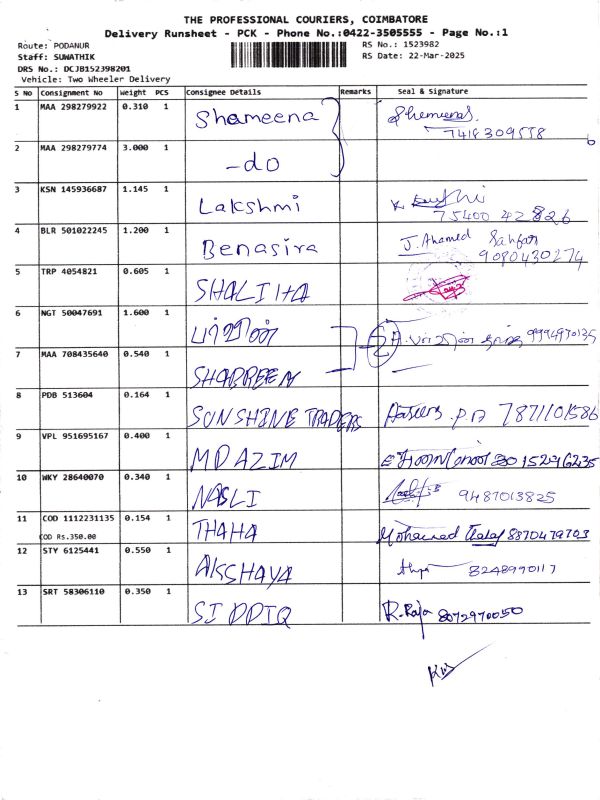 THE PROFESSIONAL COURIERS, COIMBATORE
Delivery Runsheet - PCK - Phone No.:0422-3505555 - Page No.:1
Route: PODANUR
RS No.: 1523982
Staff: SUWATHIK
RS Date: 22-Mar-2025
DRS No.: DCJB152398201
Vehicle: Two Wheeler Delivery
S No Consignment No Weight PCS Consignee Details Remarks Seal & Signature
1 MAA 298279922 0.310 1 Shameena Shameena
7418309558
2 MAA 298279774 3.000 1 -do
3 KSN 145936687 1.145 1 Lakshmi
75400 42826
4 BLR 501022245 1.200 1 Benasira J. Ahamed
9080430274
5 TRP 4054821 0.605 1 SHALIHA
6 NGT 50047691 1.600 1 பர்வீன் பர்வீன் 9994970135
7 MAA 708435640 0.540 1 SHABREEN
8 PDB 513604 0.164 1 SUNSHINE TRADERS P.A 7871101586
9 VPL 951695167 0.400 1 MD AZIM 8015296235
10 WKY 28640070 0.340 1 NASLI 9487013825
11 COD 1112231135 0.154 1 THAHA Mohamed 8870479703
COD Rs.350.00
12 STY 6125441 0.550 1 AKSHAYA 8248970117
13 SRT 58306110 0.350 1 SIDDIQ R.Raja 8072970050